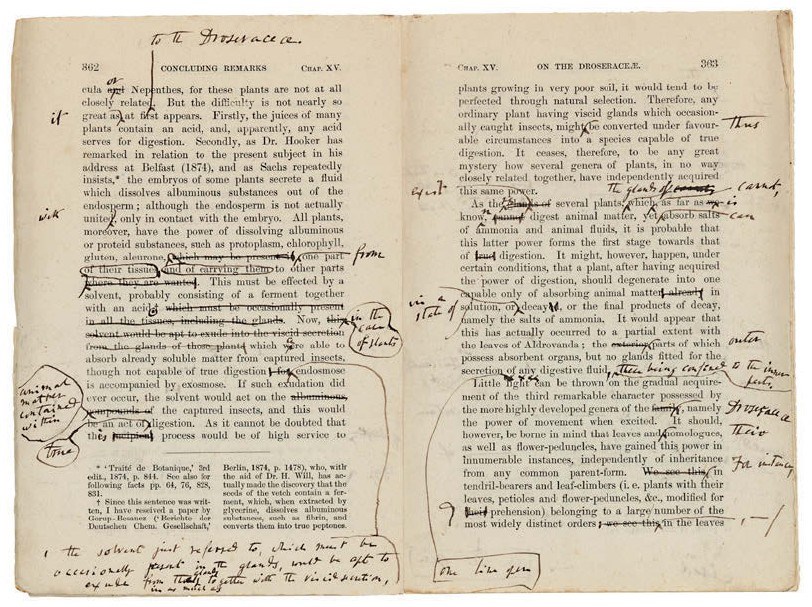 to the Droseraceæ.
362 CONCLUDING REMARKS CHAP. XV.
or
cula and Nepenthes, for these plants are not at all
closely related. But the difficulty is not nearly so
it
great as at first appears. Firstly, the juices of many
plants contain an acid, and, apparently, any acid
serves for digestion. Secondly, as Dr. Hooker has
remarked in relation to the present subject in his
address at Belfast (1874), and as Sachs repeatedly
insists,* the embryos of some plants secrete a fluid
which dissolves albuminous substances out of the
endosperm; although the endosperm is not actually
with
united, only in contact with the embryo. All plants,
moreover, have the power of dissolving albuminous
or proteid substances, such as protoplasm, chlorophyll,
gluten, aleurone, which may be present in one part
from
of their tissues and of carrying them to other parts
where they are wanted. This must be effected by a
solvent, probably consisting of a ferment together
with an acid; which must be occasionally present
in all the tissues, including the glands. Now, this
in the case of plants
solvent would be apt to exude into the viscid secretion
from the glands of those plants which are able to
absorb already soluble matter from captured insects,
though not capable of true digestion; for endosmose
is accompanied by exosmose. If such exudation did
ever occur, the solvent would act on the albuminous
animal matter contained within
compounds of the captured insects, and this would
be an act of digestion. As it cannot be doubted that
true
this incipient process would be of high service to
* 'Traité de Botanique,' 3rd
edit., 1874, p. 844. See also for
following facts pp. 64, 76, 828,
831.
† Since this sentence was writ-
ten, I have received a paper by
Gorup-Besanez ('Berichte der
Deutschen Chem. Gesellschaft,'
Berlin, 1874, p. 1478), who, with
the aid of Dr. H. Will, has ac-
tually made the discovery that the
seeds of the vetch contain a fer-
ment, which, when extracted by
glycerine, dissolves albuminous
substances, such as fibrin, and
converts them into true peptones.
the solvent just referred to, which must be
occasionally present in the glands, would be apt to
exude from the glands together with the viscid secretion,
in as much as
CHAP. XV. ON THE DROSERACEÆ. 363
plants growing in very poor soil, it would tend to be
perfected through natural selection. Therefore, any
ordinary plant having viscid glands which occasion-
ally caught insects, might be converted under favour-
thus
able circumstances into a species capable of true
digestion. It ceases, therefore, to be any great
mystery how several genera of plants, in no way
closely related together, have independently acquired
this same power.
exist the glands of cannot,
As the glands of several plants, which, as far as we
is
know, cannot digest animal matter, yet absorb salts
can
of ammonia and animal fluids, it is probable that
this latter power forms the first stage towards that
of true digestion. It might, however, happen, under
certain conditions, that a plant, after having acquired
the power of digestion, should degenerate into one
capable only of absorbing animal matter already in
in a state of
solution, or decayed, or the final products of decay,
namely the salts of ammonia. It would appear that
this has actually occurred to a partial extent with
the leaves of Aldrovanda; the exterior parts of which
outer
possess absorbent organs, but no glands fitted for the
secretion of any digestive fluid, these being confined to the inner parts.
Little light can be thrown on the gradual acquire-
ment of the third remarkable character possessed by
the more highly developed genera of the family, namely
Droseraceæ
the power of movement when excited. It should,
however, be borne in mind that leaves and homologues,
their
as well as flower-peduncles, have gained this power in
innumerable instances, independently of inheritance
from any common parent-form. We see this in
For instance,
tendril-bearers and leaf-climbers (i. e. plants with their
leaves, petioles and flower-peduncles, &c., modified for
their prehension) belonging to a large number of the
most widely distinct orders; we see this in the leaves
one line open